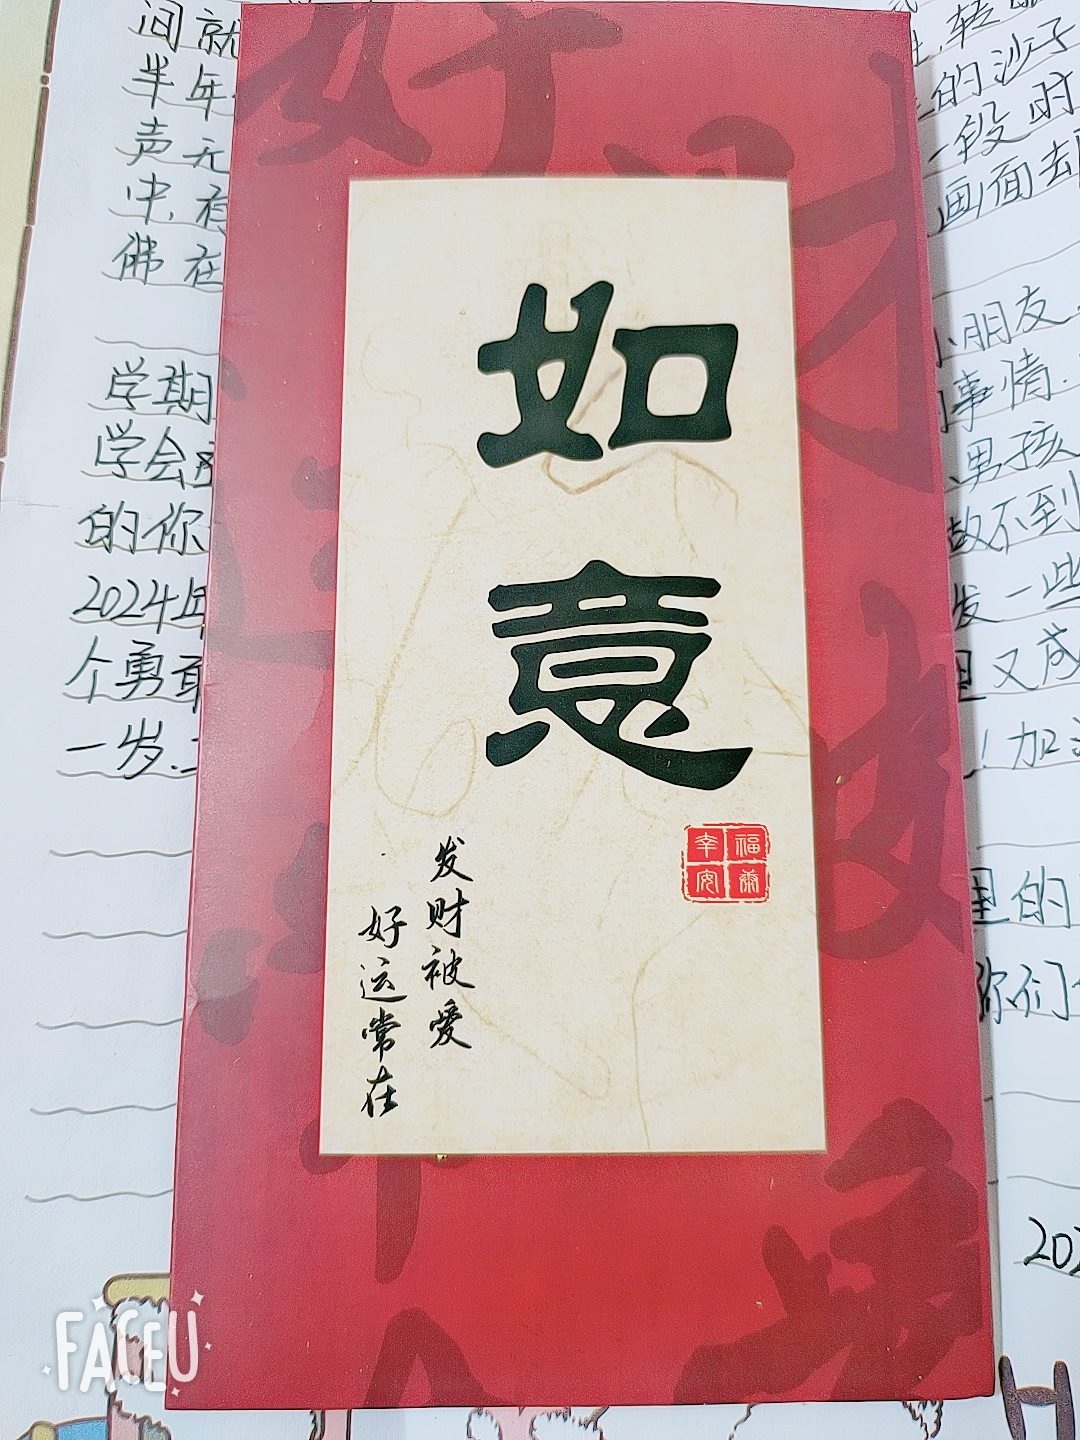 如意
福泰
幸安
发财被爱
好运常在
间就
半年
声无
中,有
佛在
学期
学会
的你
2024年
个勇敢
一岁.
的沙子
一段时
画面去
小朋友
事情.
男孩
做不到
发一些
里又成
!加油
里的
你们
202
FACEU